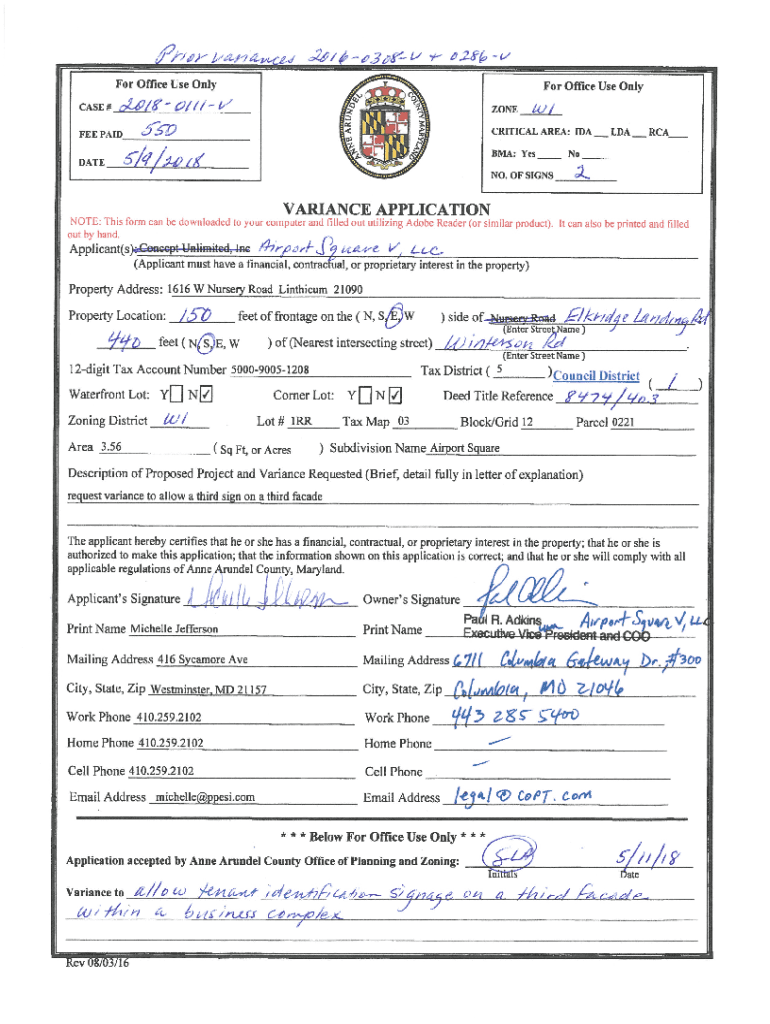 Prior variances 2016-0308-V + 0286-V
For Office Use Only
CASE # 2018-0111-V
FEE PAID 550
DATE 5/9/2018
ANNE ARUNDEL COUNTY, MARYLAND
For Office Use Only
ZONE W1
CRITICAL AREA: IDA ___ LDA ___ RCA ___
BMA: Yes ____ No ____
NO. OF SIGNS 2
VARIANCE APPLICATION
NOTE: This form can be downloaded to your computer and filled out utilizing Adobe Reader (or similar product). It can also be printed and filled
out by hand.
Applicant(s): Concept Unlimited, Inc Airport Square V, LLC
(Applicant must have a financial, contractual, or proprietary interest in the property)
Property Address: 1616 W Nursery Road Linthicum 21090
Property Location: 150 feet of frontage on the ( N, S, E, W ) side of Nursery Road Elkridge Landing Rd
(Enter Street Name )
440 feet ( N, S, E, W ) of (Nearest intersecting street) Winterson Rd
(Enter Street Name )
12-digit Tax Account Number 5000-9005-1208 Tax District ( 5 ) Council District ( 1 )
Waterfront Lot: Y ☐ N ☑ Corner Lot: Y ☐ N ☑ Deed Title Reference 8474/403
Zoning District W1 Lot # 1RR Tax Map 03 Block/Grid 12 Parcel 0221
Area 3.56 ( Sq Ft, or Acres ) Subdivision Name Airport Square
Description of Proposed Project and Variance Requested (Brief, detail fully in letter of explanation)
request variance to allow a third sign on a third facade
The applicant hereby certifies that he or she has a financial, contractual, or proprietary interest in the property; that he or she is
authorized to make this application; that the information shown on this application is correct; and that he or she will comply with all
applicable regulations of Anne Arundel County, Maryland.
Applicant's Signature Owner's Signature
Print Name Michelle Jefferson Print Name Paul R. Adkins Airport Square V, LLC
Executive Vice President and COO
Mailing Address 416 Sycamore Ave Mailing Address 6711 Columbia Gateway Dr. #300
City, State, Zip Westminster, MD 21157 City, State, Zip Columbia, MD 21046
Work Phone 410.259.2102 Work Phone 443 285 5400
Home Phone 410.259.2102 Home Phone —
Cell Phone 410.259.2102 Cell Phone —
Email Address michelle@ppesi.com Email Address legal@COPT.com
* * * Below For Office Use Only * * *
Application accepted by Anne Arundel County Office of Planning and Zoning: SLA 5/11/18
Initials Date
Variance to allow tenant identification signage on a third facade
within a business complex
Rev 08/03/16